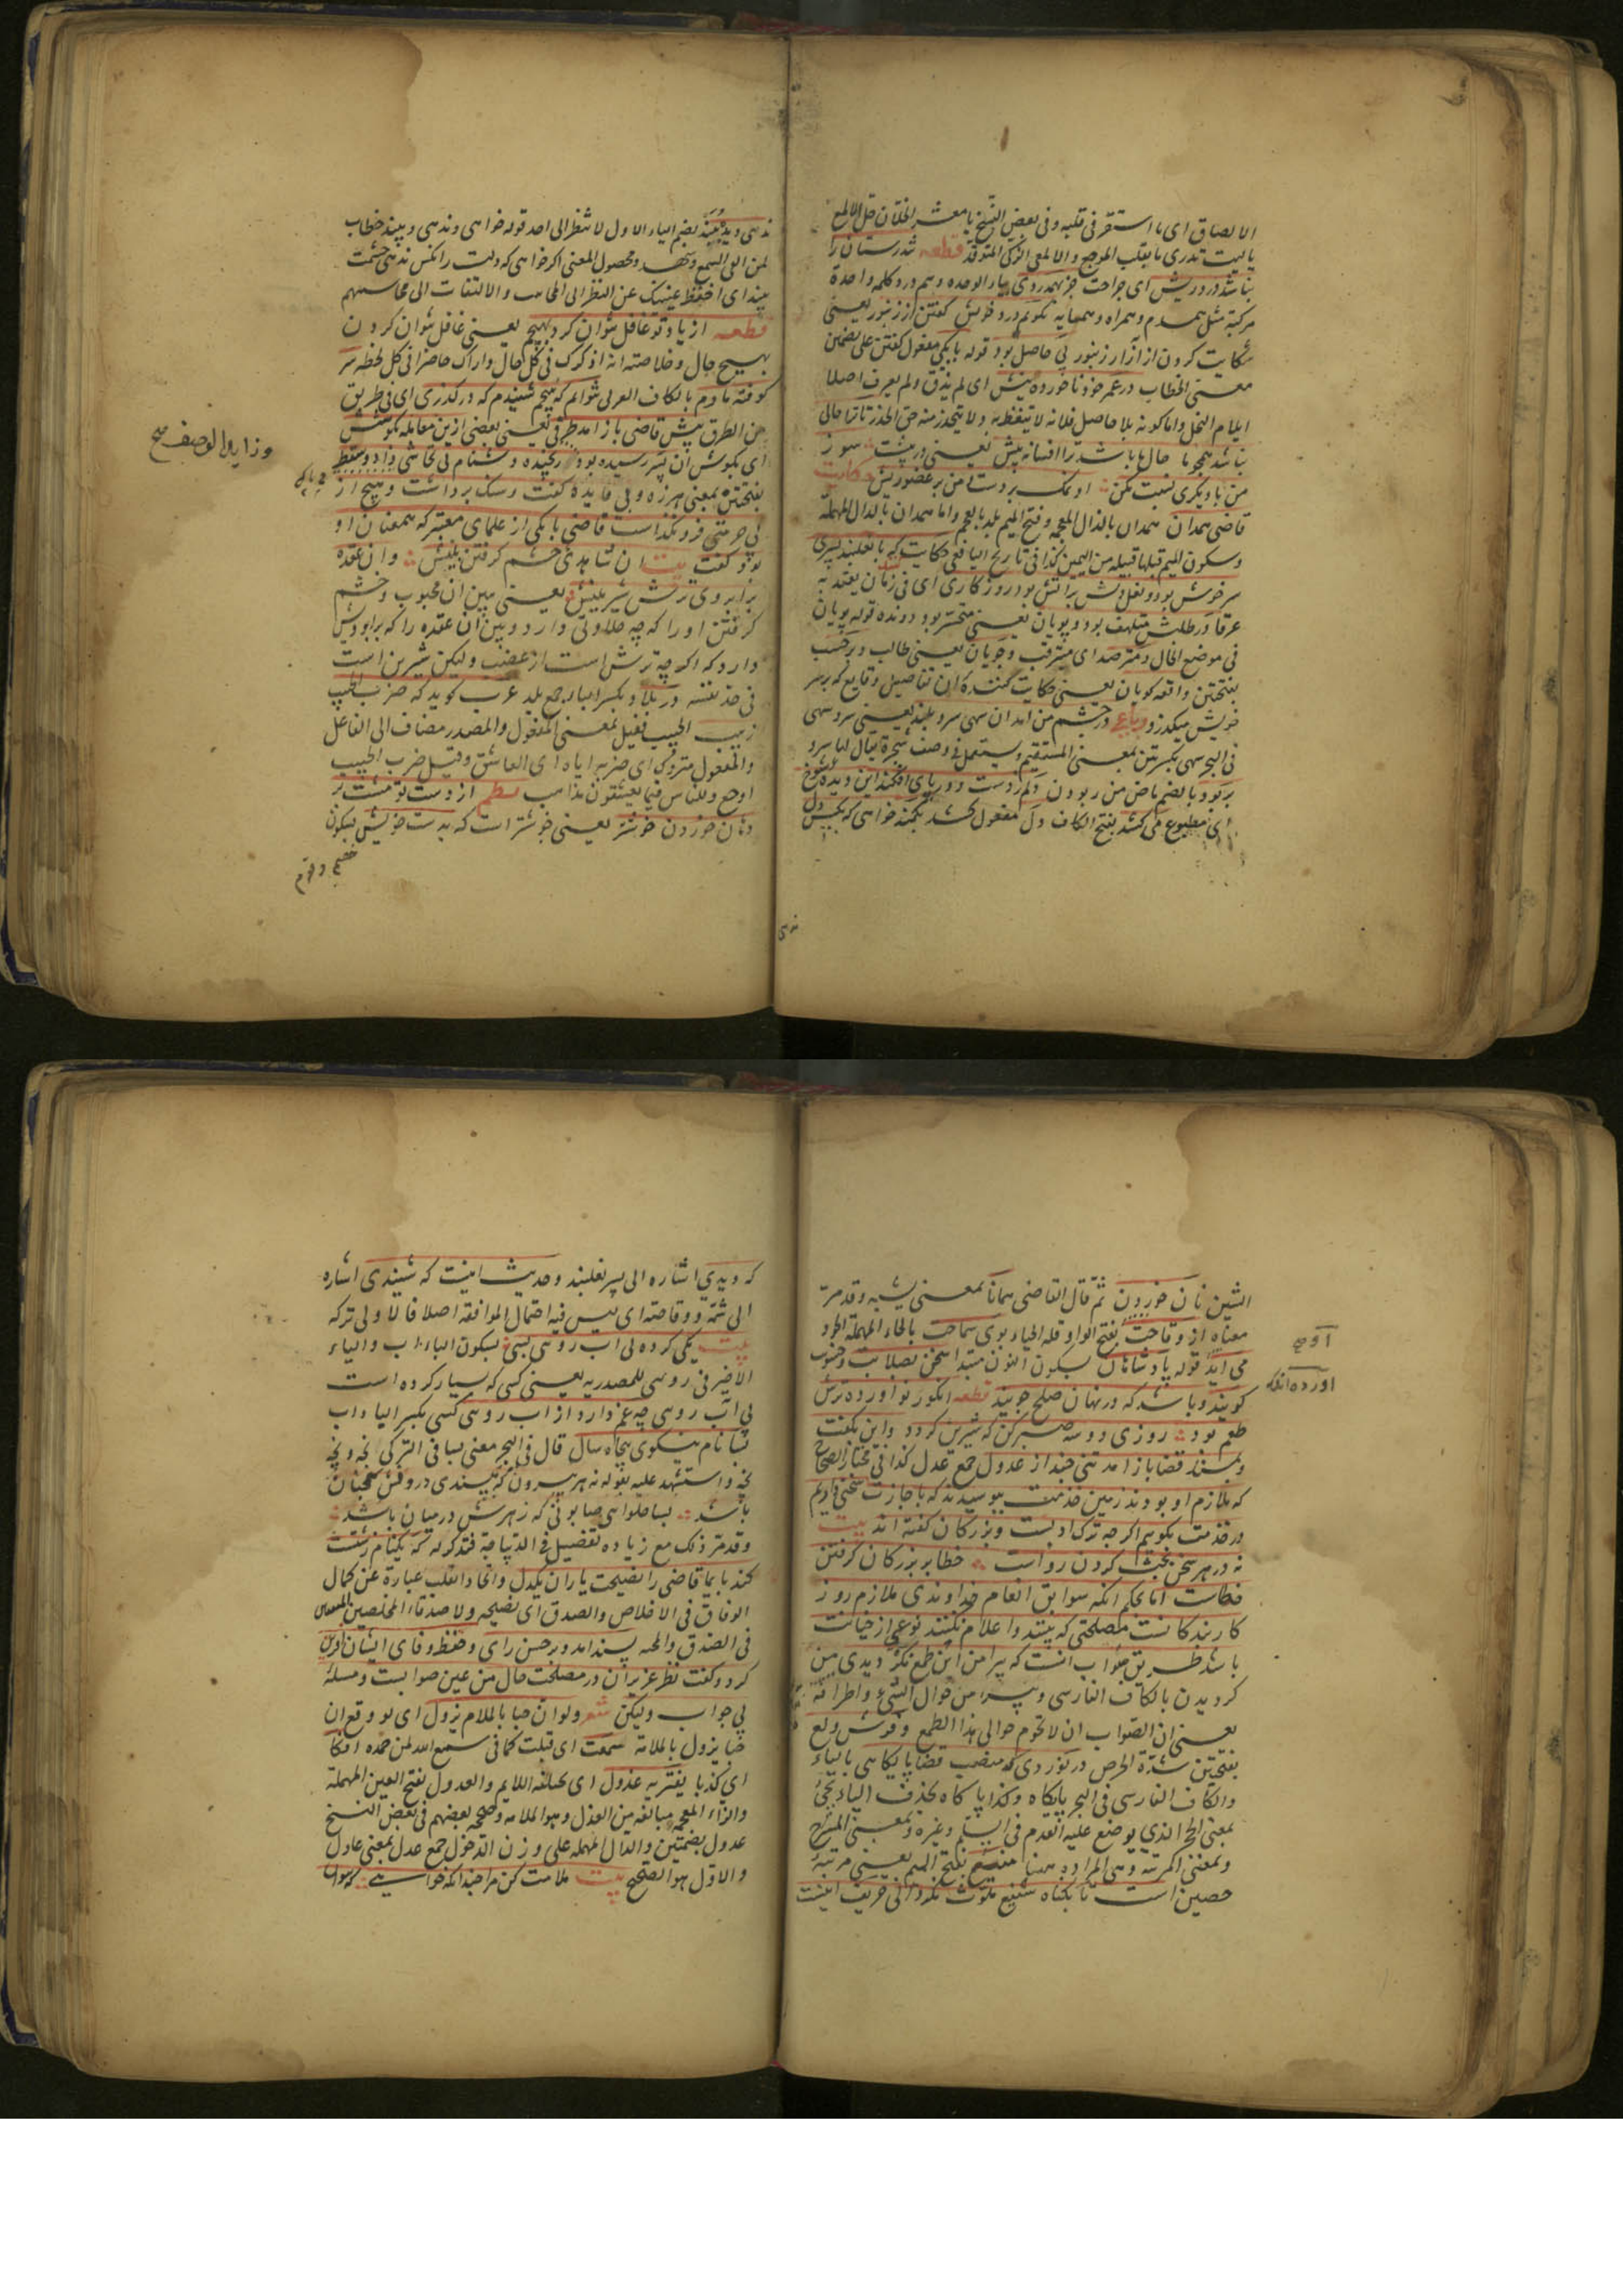 الالصاق ای ما استقر فی قلبه وفی بعض النسخ یا معشر الخلان قل للمع
یا لیت تدری ما بقلب الموجع والالمعی الذکی المتوقد قطعه تندرستان را
نباشد درد ریش ای جراحت جز بهمدردی بیاء الوحده وهم درد کلمه واحدة
مرکبة مثل همدم وهمراه وهمسایه نکویم درد خویش کفتن از زنبور یعنی
شکایت کردن از آزار زنبور بی حاصل بود قوله با یکی مفعول کفتن علی تضمین
معنی الخطاب در عمر خود ناخورده نیش ای لم یذق ولم یعرف اصلا
ایلام النحل واما کونه بلا حاصل فلانه لا یتیقظ به ولا یتحذر منه حق الحذر تا ترا حالی
نباشد همچو ما حال ما باشد ترا افسانه پیش یعنی در پیشت سوز
من با دیکری نسبت مکن او نمک بر دست ومن بر عضو ریش حکایت
قاضی همدان همدان بالذال المعجمه وفتح المیم بلد بالعجم واما همدان بالدال المهملة
وسکون المیم قبلها قبیله من الیمن کذا فی تاریخ الیافعی حکایت که با نعلبند پسری
سرخوش بود ونعل دلش بر آتش بود روزکاری ای فی زمان یعتد به
عرفا در طلبش متلهف بود وپویان یعنی متحسر بود ودونده قوله پویان
فی موضع الحال ومترصد ای مترقب وجویان یعنی طالب وبر حسب
بفتحتین واقعه کویان یعنی حکایت کننده ان تفاصیل وقایع که بر سر
خویش میکذرد رباعی در چشم من امد ان سهی سرو بلند یعنی سرو سهی
فی البحر سهی بکسرتین بمعنی المستقیم ویستعمل فی وصف شجرة یقال لها سرو
بربود بالضم ماض من ربودن دلم ز دست ودر پای افکند این دیده شوخ
ای مطبوع می کشد بفتح الکاف دل مفعول کشد بکمند خواهی که بکس دل
ندهی
ندهی ودیده ببند بضم الیاء الاول لا تنظر الی احد قوله خواهی وندهی وببند خطاب
لمن القی السمع وشهد ومحصول المعنی اکر خواهی که دلت را بکس ندهی چشمت
ببند ای احفظ عینیک عن النظر الی المحاسن والالتفات الی محاسنهم
قطعه از یاد تو غافل نتوان کرد بهیچم یعنی غافل نتوان کردن
بهیچ حال وخلاصته انه اذکرک فی کل حال واراک حاضرا فی کل لحظه سر
کوفته مارم بالکاف العربی نتوانم که نپیچم شنیدم که در کذری ای فی طریق
من الطرق پیش قاضی باز امد طرفی یعنی بعضی ازین معامله بکوشش
ای بکوش ان پسر رسیده بود رنجیده دشنام بی تحاشی داد وسقط
بفتحتین بمعنی هرزه وبی فایده کفت وسنک برداشت وهیچ از
بی حرمتی فرو نکذاشت قاضی با یکی از علمای معتبر که همعنان او
بود کفت بیت ان شاهدی وخشم کرفتن بینش وان عقده
بر ابروی ترش شیرینش یعنی ببین ان محبوب وخشم
کرفتن او را که چه حلاوتی دارد وببین ان عقده را که بر ابرویش
دارد که اکرچه ترش است از غضب ولیکن شیرین است
فی حد نفسه در بلاد بکسر الباء جمع بلد عرب کوید که ضرب الحبیب
زبیب الحبیب فعیل بمعنی المفعول والمصدر مضاف الی الفاعل
والمفعول متروک ای ضربه ایاه ای العاشق وقیل ضرب الحبیب
اوجع وللناس فیما یعشقون مذاهب نظم از دست تو مشت بر
دهان خوردن خوشتر یعنی خوشتر است که بدست خویش بسکون
وزایدا الوصف صح
الشین نان خوردن ثم قال القاضی همانا بمعنی یشبه وقد مر
معناه از وقاحت بفتح الواو قلة الحیاء بوی سماحت بالحاء المهملة الجود
می آید قوله پادشاهان بسکون النون مبتدا سخن بصلابت
کویند وباشد که در نهان صلح جویند قطعه انکور نو اورده ترش
طعم بود روزی دو سه صبر کن که شیرین کردد واین بکفت
وبمسند قضا باز امد تنی چند از عدول جمع عدل کذا فی مختار الصحاح
که ملازم او بودند زمین خدمت ببوسیدند که باجازت سخنی داریم
در خدمت بکوییم اکرچه ترک ادبست وبزرکان کفته اند بیت
نه در هر سخن بحث کردن رواست خطا بر بزرکان کرفتن
خطاست اما بحکم انکه سوابق انعام خداوندی ملازم روز
کار بندکانست مصلحتی که بینند واعلام نکنند نوعی از خیانت
باشد طریق صواب انست که پیرامن این طمع نکردی من
کردیدن بالکاف الفارسی وپیرامن حوال الشیء واطرافه
یعنی ان الصواب ان لا تحوم حوالی هذا الطمع وفرش ولع
بفتحتین شدة الحرص در نوردی که منصب قضا پایکاهی بالیاء
والکاف الفارسی فی البحر پایکاه وکذا پاکاه بحذف الیاء یجیء
بمعنی الحجر الذی یوضع علیه القدم فی السلم وغیره وبمعنی المنزلة
وبمعنی المرتبة وهی المراده ههنا منیع بفتح المیم یعنی مرتبة
حصین است تا بکناه شنیع ملوث نکردانی حریف اینست
که دیدی اشاره الی پسر نعلبند وحدیث اینست که شنیدی اشاره
الی شتمه ووقاحته ای لیس فیه احتمال الموافقة اصلا فالاولی ترکه
بیت یکی کرده بی آب رویی بسی بسکون الباء آب والیاء
الاخیر فی رویی للمصدریه یعنی کسی که بسیار کرده است
بی آب رویی چه غم دارد از آب روی کسی بکسر الباء آب
بسا نام نیکوی پنجاه سال قال فی البحر معنی بسا فی الترکی نجه ونجه
نجه واستشهد علیه بقوله نه هر بیرون که بپسندی درونش همچنان
باشد بسا حلوای صابونی که زهرش در میان باشد
وقد مر ذلک مع زیاده تفصیل فی الدیباجة فتذکر له که یک نام زشتت
کند پایمال قاضی را نصیحت یاران یکدل واتحاد القلب عبارة عن کمال
الوفاق فی الاخلاص والصدق ای نصیحة الاصدقاء المخلصین
فی الصدق والمحبة پسند امد وبر حسن رای وحفظ وفای ایشان افرین
کرد وکفت نظر عزیزان در مصلحت حال من عین صوابست ومسئلة
بی جواب ولیکن شعر ولو ان حبا بالملام یزول ای لو وقع ان
حبا یزول بالملامة سمعت ای قبلت کما فی سمع الله لمن حمده افکا
ای کذبا یفتریه عذول ای یختلقه اللایم والعذول بفتح العین المهملة
والذال المعجمة مبالغه من العذل وهو الملامه وصحح بعضهم فی بعض النسخ
عدول بضمتین والدال المهمله علی وزن الدخول جمع عدل بمعنی عادل
والاول هو الصحیح بیت ملامت کن مرا چندانکه خواهی که نتوان